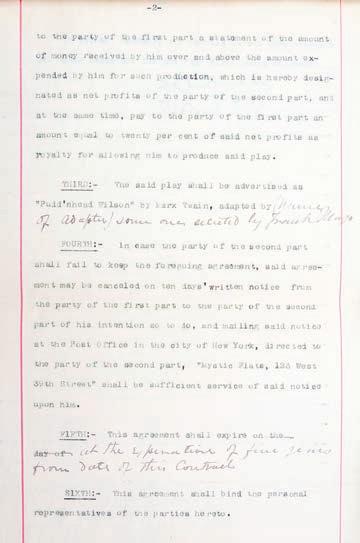 -2-
to the party of the first part a statement of the amount
of money received by him over and above the amount ex-
pended by him for such production, which is hereby desig-
nated as net profits of the party of the second part, and
at the same time, pay to the party of the first part an
amount equal to twenty per cent of said net profits as
royalty for allowing him to produce said play.
THIRD:- The said play shall be advertised as
"Pudd'nhead Wilson" by Mark Twain, adapted by (Name
of adapter) some one selected by Frank Mayo
FOURTH:- In case the party of the second part
shall fail to keep the foregoing agreement, said agree-
ment may be canceled on ten days' written notice from
the party of the first part to the party of the second
part of his intention so to do, and mailing said notice
at the Post Office in the city of New York, directed to
the party of the second part, "Mystic Flats, 123 West
39th Street" shall be sufficient service of said notice
upon him.
FIFTH:- This agreement shall expire on the
day of at the expiration of five years
from date of this Contract
SIXTH:- This agreement shall bind the personal
representatives of the parties hereto.